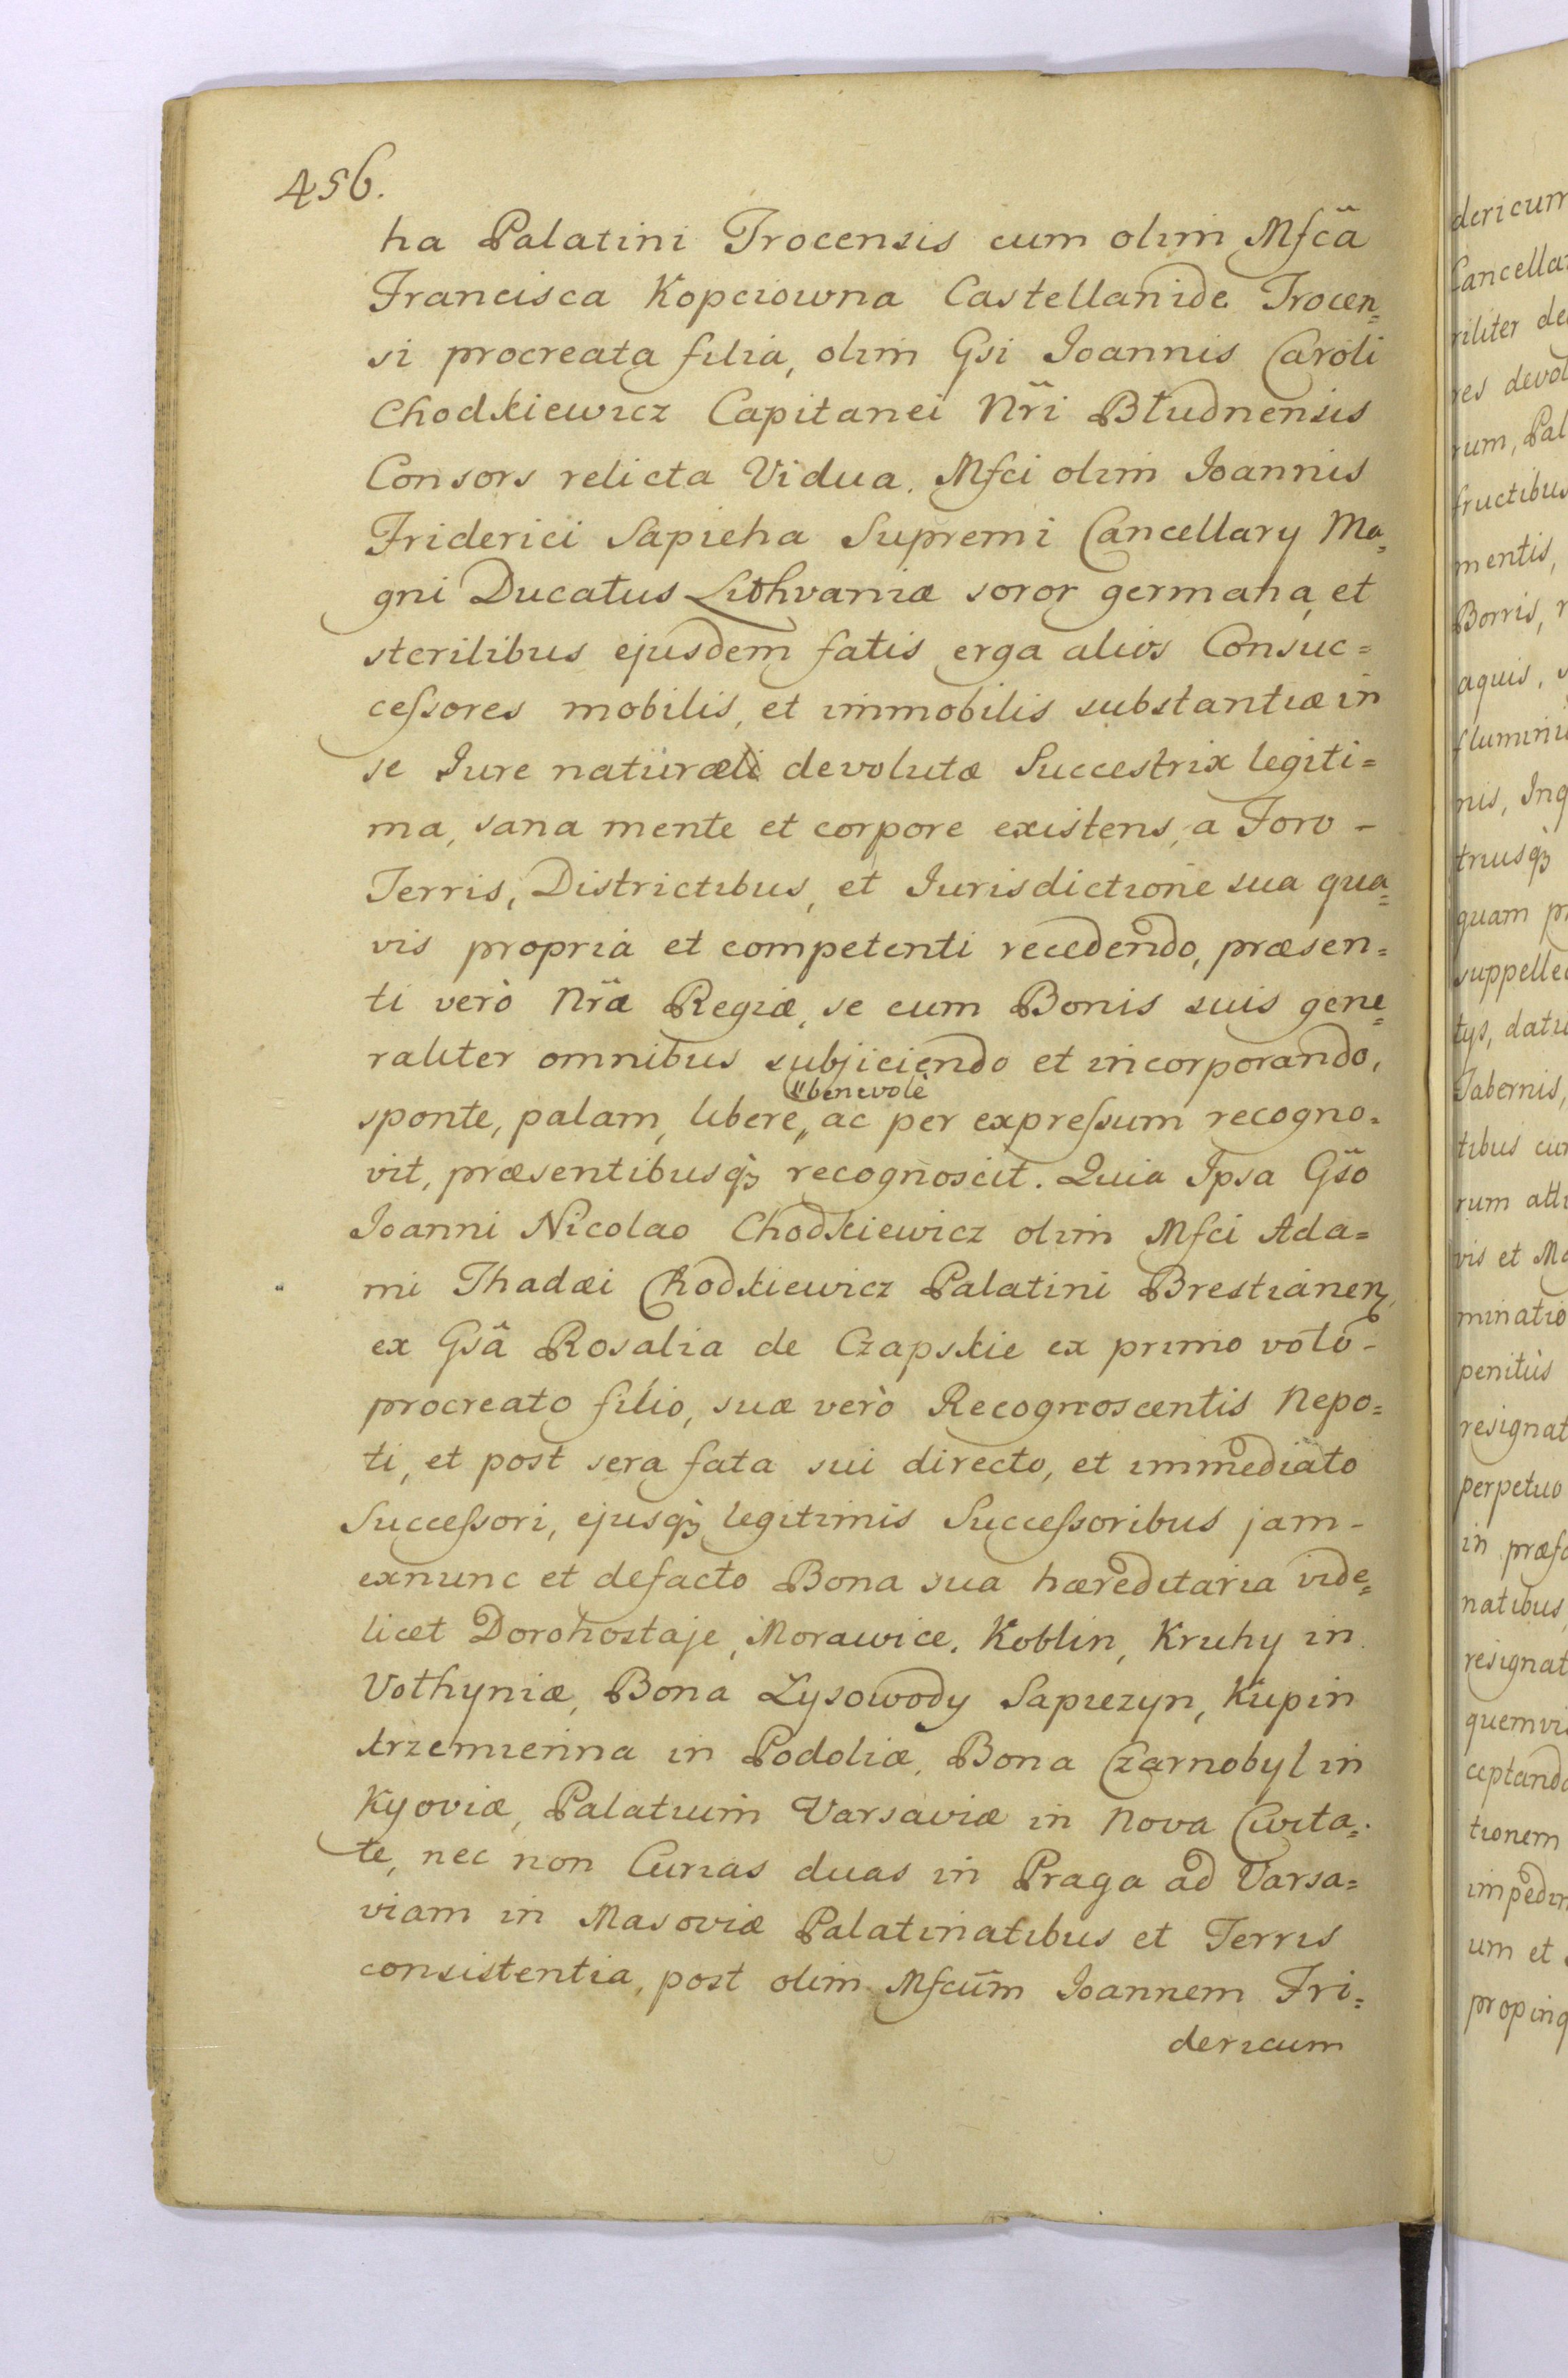 456.
ha Palatini Trocensis cum olim Mfc̃a
Francisca Kopciowna Castellanide Trocen=
si procreata filia, olim Gsi Joannis Caroli
Chodkiewicz Capitanei Nr̃i Błudnensis
Consors relicta Vidua. Mfci olim Joannis
Friderici Sapieha Supremi Cancellary Ma=
gni Ducatus Lithvaniæ soror germana, et
sterilibus ejusdem fatis erga alios Consuc=
ceſsores mobilis, et immobilis substantiæ in
se Jure naturali devolutæ Succestrix legiti=
ma, sana mente et corpore existens, a Foro -
Terris, Districtibus, et Jurisdictione sua qua=
vis propria et competenti recedendo, præsen=
ti verò Nr̃æ Regiæ, se cum Bonis suis gene=
raliter omnibus subjiciendo et incorporando,
"benevolè
sponte, palam, libere," ac per expreſsum recogno=
vit, præsentibusq̀ȝ recognoscit. Quia Ipsa Gs̃o
Joanni Nicolao Chodkiewicz olim Mfci Ada=
mi Thadæi Chodkiewicz Palatini Brestianenȝ
ex Gsâ Rosalia de Czapskie ex primo voto -
procreato filio, suæ verò Recognoscentis Nepo=
ti, et post sera fata sui directo, et immediato
Succeſsori, ejusq̀ȝ legitimis Succeſsoribus jam -
exnunc et defacto Bona sua hæreditaria vide=
licet Dorohostaje, Morawice, Koblin, Kruhy in
Vołhyniæ, Bona Łysowody Sapiezyn, Kupin
krzemienna in Podoliæ, Bona Czarnobyl in
Kyoviæ, Palatium Varsaviæ in Nova Civita=
te, nec non Curias duas in Praga ad Varsa=
viam in Masoviæ Palatinatibus et Terris
consistentia, post olim Mfcũm Joannem Fri=
dericum
dericum
Cancella
riliter de
res devol
rum, Pal
fructibus
mentis,
Borris, r
aquis,
fluminu
nis, Ing
triusq̀ȝ
quam pr
suppellec
tys, datu
Tabernis,
tibus cu
rum atti
vis et Ma
minatio
penitùs
resignat
perpetuo
in præfa
natibus
resignat
quemvi
ceptando
tionem
impedim
um et
propinq